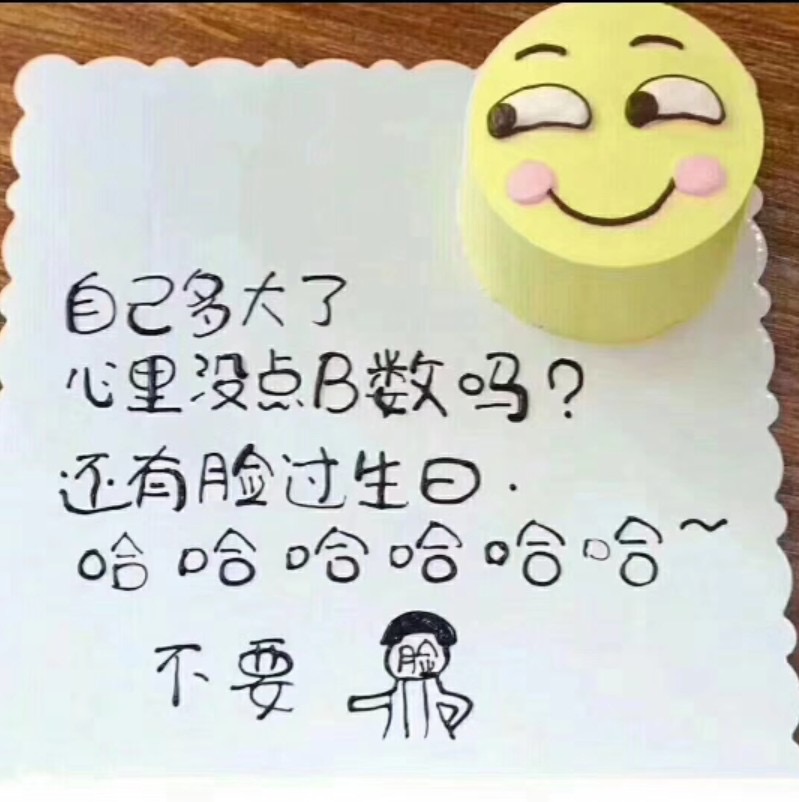 自己多大了
心里没点B数吗?
还有脸过生日.
哈哈哈哈哈哈~
不要脸